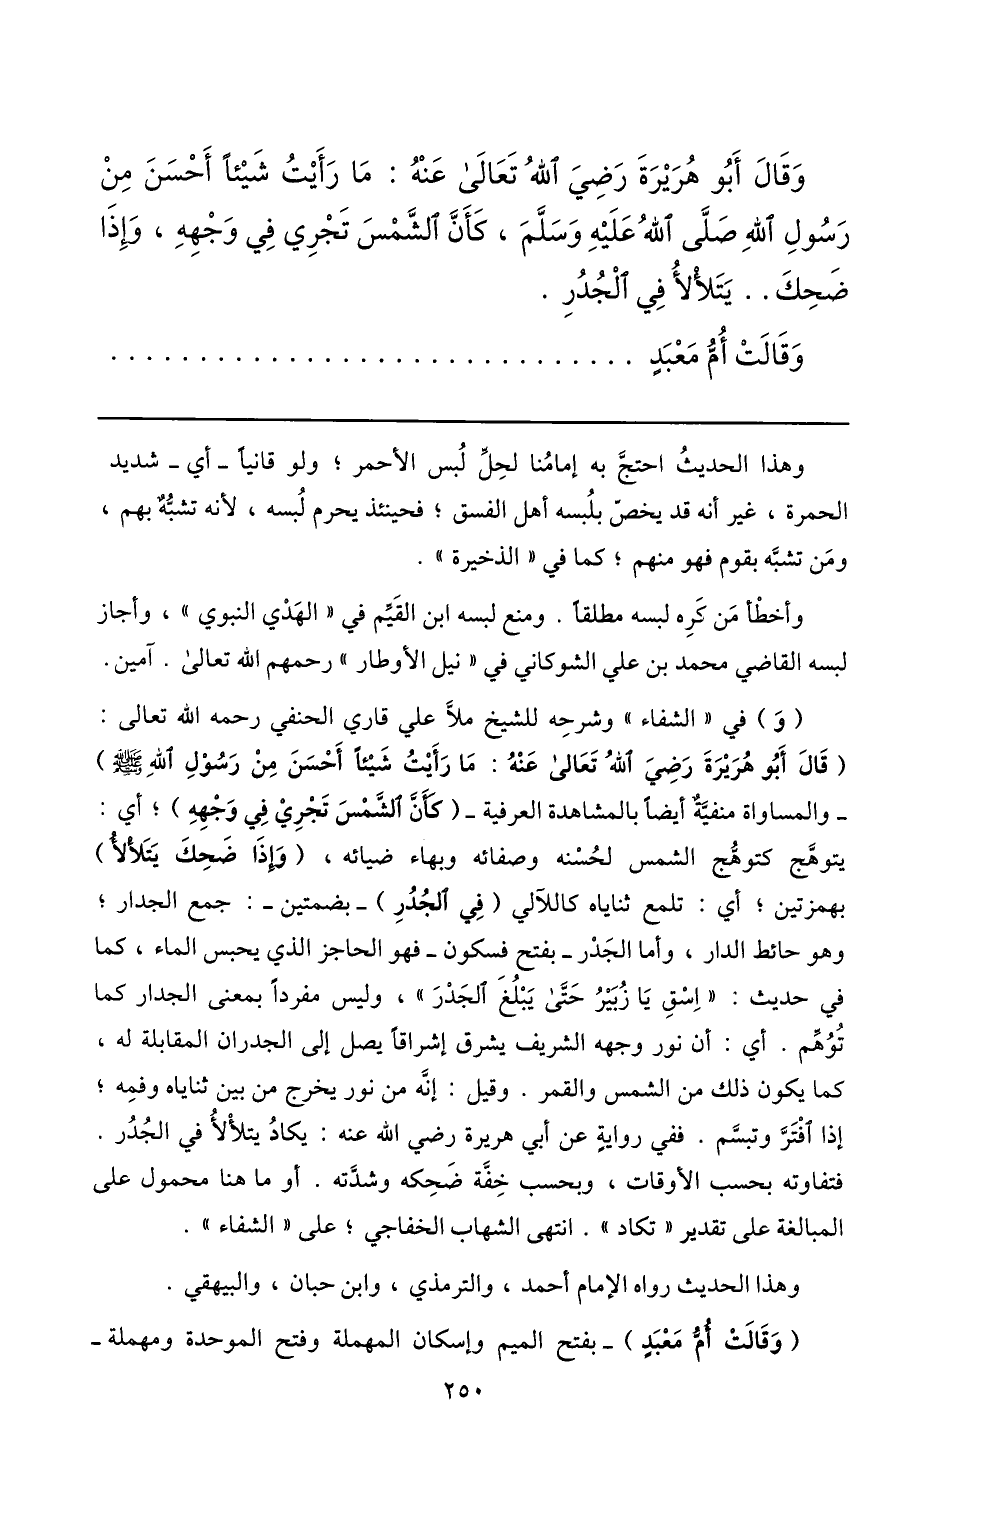 وَقَالَ أَبُو هُرَيْرَةَ رَضِيَ ٱللهُ تَعَالَىٰ عَنْهُ : مَا رَأَيْتُ شَيْئاً أَحْسَنَ مِنْ
رَسُولِ ٱللهِ صَلَّى ٱللهُ عَلَيْهِ وَسَلَّمَ ، كَأَنَّ ٱلشَّمْسَ تَجْرِي فِي وَجْهِهِ ، وَإِذَا
ضَحِكَ . . يَتَلأْلأُ فِي ٱلْجُدُرِ .
وَقَالَتْ أُمُّ مَعْبَدٍ . . . . . . . . . . . . . . . . . . . . . . . . . . . . . .
وهذا الحديثُ احتجَّ به إمامُنا لحِلِّ لُبس الأحمر ؛ ولو قانياً ـ أي ـ شديد
الحمرة ، غير أنه قد يخصّ بلُبسه أهل الفسق ؛ فحينئذ يحرم لُبسه ، لأنه تشبُّهٌ بهم ،
ومَن تشبَّه بقوم فهو منهم ؛ كما في « الذخيرة » .
وأخطْأ مَن كَرِه لبسه مطلقاً . ومنع لبسه ابن القَيِّم في « الهَدْي النبوي » ، وأجاز
لبسه القاضي محمد بن علي الشوكاني في « نيل الأوطار » رحمهم الله تعالىٰ . آمين.
( وَ ) في « الشفاء » وشرحِه للشيخ ملاَّ علي قاري الحنفي رحمه الله تعالى :
( قَالَ أَبُو هُرَيْرَةَ رَضِيَ ٱللهُ تَعَالىٰ عَنْهُ : مَا رَأَيْتُ شَيْئاً أَحْسَنَ مِنْ رَسُوْلِ ٱللهِ ﷺ )
ـ والمساواة منفيَّةٌ أيضاً بالمشاهدة العرفية ـ ( كَأَنَّ ٱلشَّمْسَ تَجْرِيْ فِي وَجْهِهِ ) ؛ أي :
يتوهَّج كتوهُّج الشمس لحُسْنه وصفائه وبهاء ضيائه ، ( وَإِذَا ضَحِكَ يَتَلأْلأُ )
بهمزتين ؛ أي : تلمع ثناياه كاللآلي ( فِي ٱلجُدُرِ ) ـ بضمتين ـ : جمع الجدار ؛
وهو حائط الدار ، وأما الجَدْر ـ بفتح فسكون ـ فهو الحاجز الذي يحبس الماء ، كما
في حديث : « إِسْقِ يَا زُبَيْرُ حَتَّىٰ يَبْلُغَ ٱلجَدْرَ » ، وليس مفرداً بمعنى الجدار كما
تُوُهِّم . أي : أن نور وجهه الشريف يشرق إشراقاً يصل إلى الجدران المقابلة له ،
كما يكون ذلك من الشمس والقمر . وقيل : إنَّه من نور يخرج من بين ثناياه وفمِه ؛
إذا ٱفْتَرَّ وتبسَّم . ففي روايةٍ عن أبي هريرة رضي الله عنه : يكادُ يتلأْلأُ في الجُدُر .
فتفاوته بحسب الأوقات ، وبحسب خِفَّة ضَحِكه وشدَّته . أو ما هنا محمول على
المبالغة على تقدير « تكاد » . انتهى الشهاب الخفاجي ؛ على « الشفاء » .
وهذا الحديث رواه الإمام أحمد ، والترمذي ، وابن حبان ، والبيهقي .
( وَقَالَتْ أُمُّ مَعْبَدٍ ) ـ بفتح الميم وإسكان المهملة وفتح الموحدة ومهملة ـ
٢٥٠